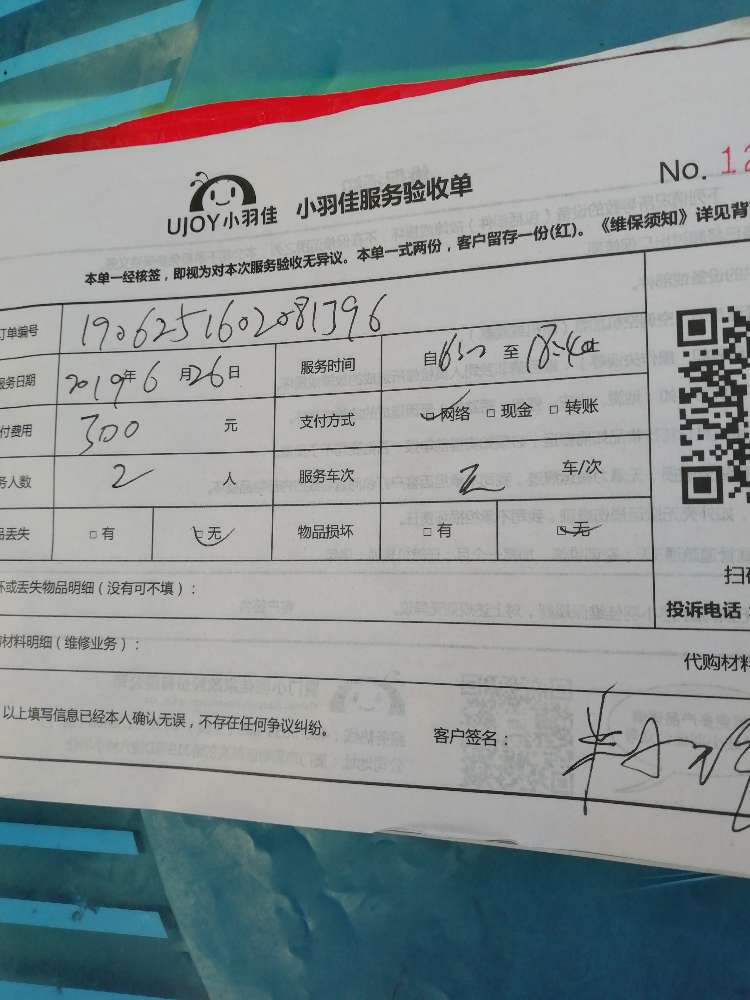 No. 12
UJOY小羽佳 小羽佳服务验收单
本单一经核签，即视为对本次服务验收无异议。本单一式两份，客户留存一份(红)。《维保须知》详见背
订单编号 1906251602081396
服务日期 2019年6月26日 服务时间 自 至
付费用 300 元 支付方式 网络 现金 转账
务人数 2 人 服务车次 2 车/次
品丢失 有 无 物品损坏 有 无
坏或丢失物品明细（没有可不填）：
扫
投诉电话：
材料明细（维修业务）：
代购材料
以上填写信息已经本人确认无误，不存在任何争议纠纷。 客户签名：